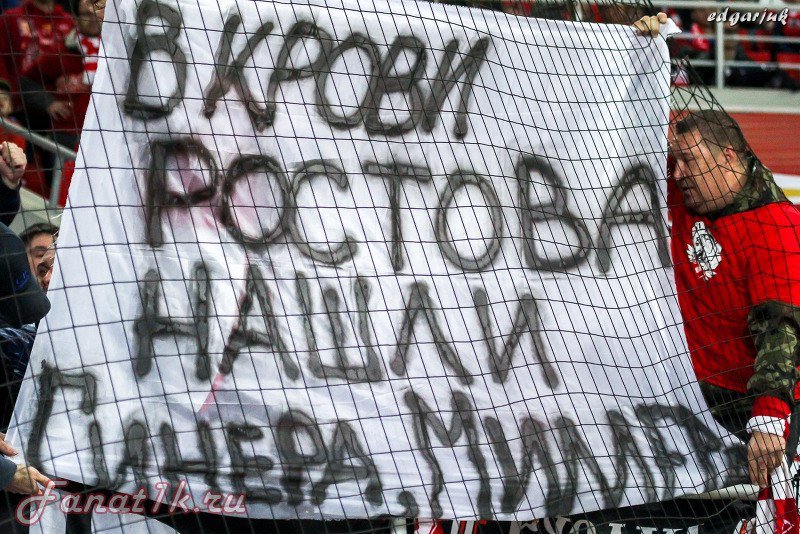 edgarjuk
В КРОВИ
РОСТОВА
НАШЛИ
СПИНЕРА, МИЛЛЕРА
Fanat1k.ru